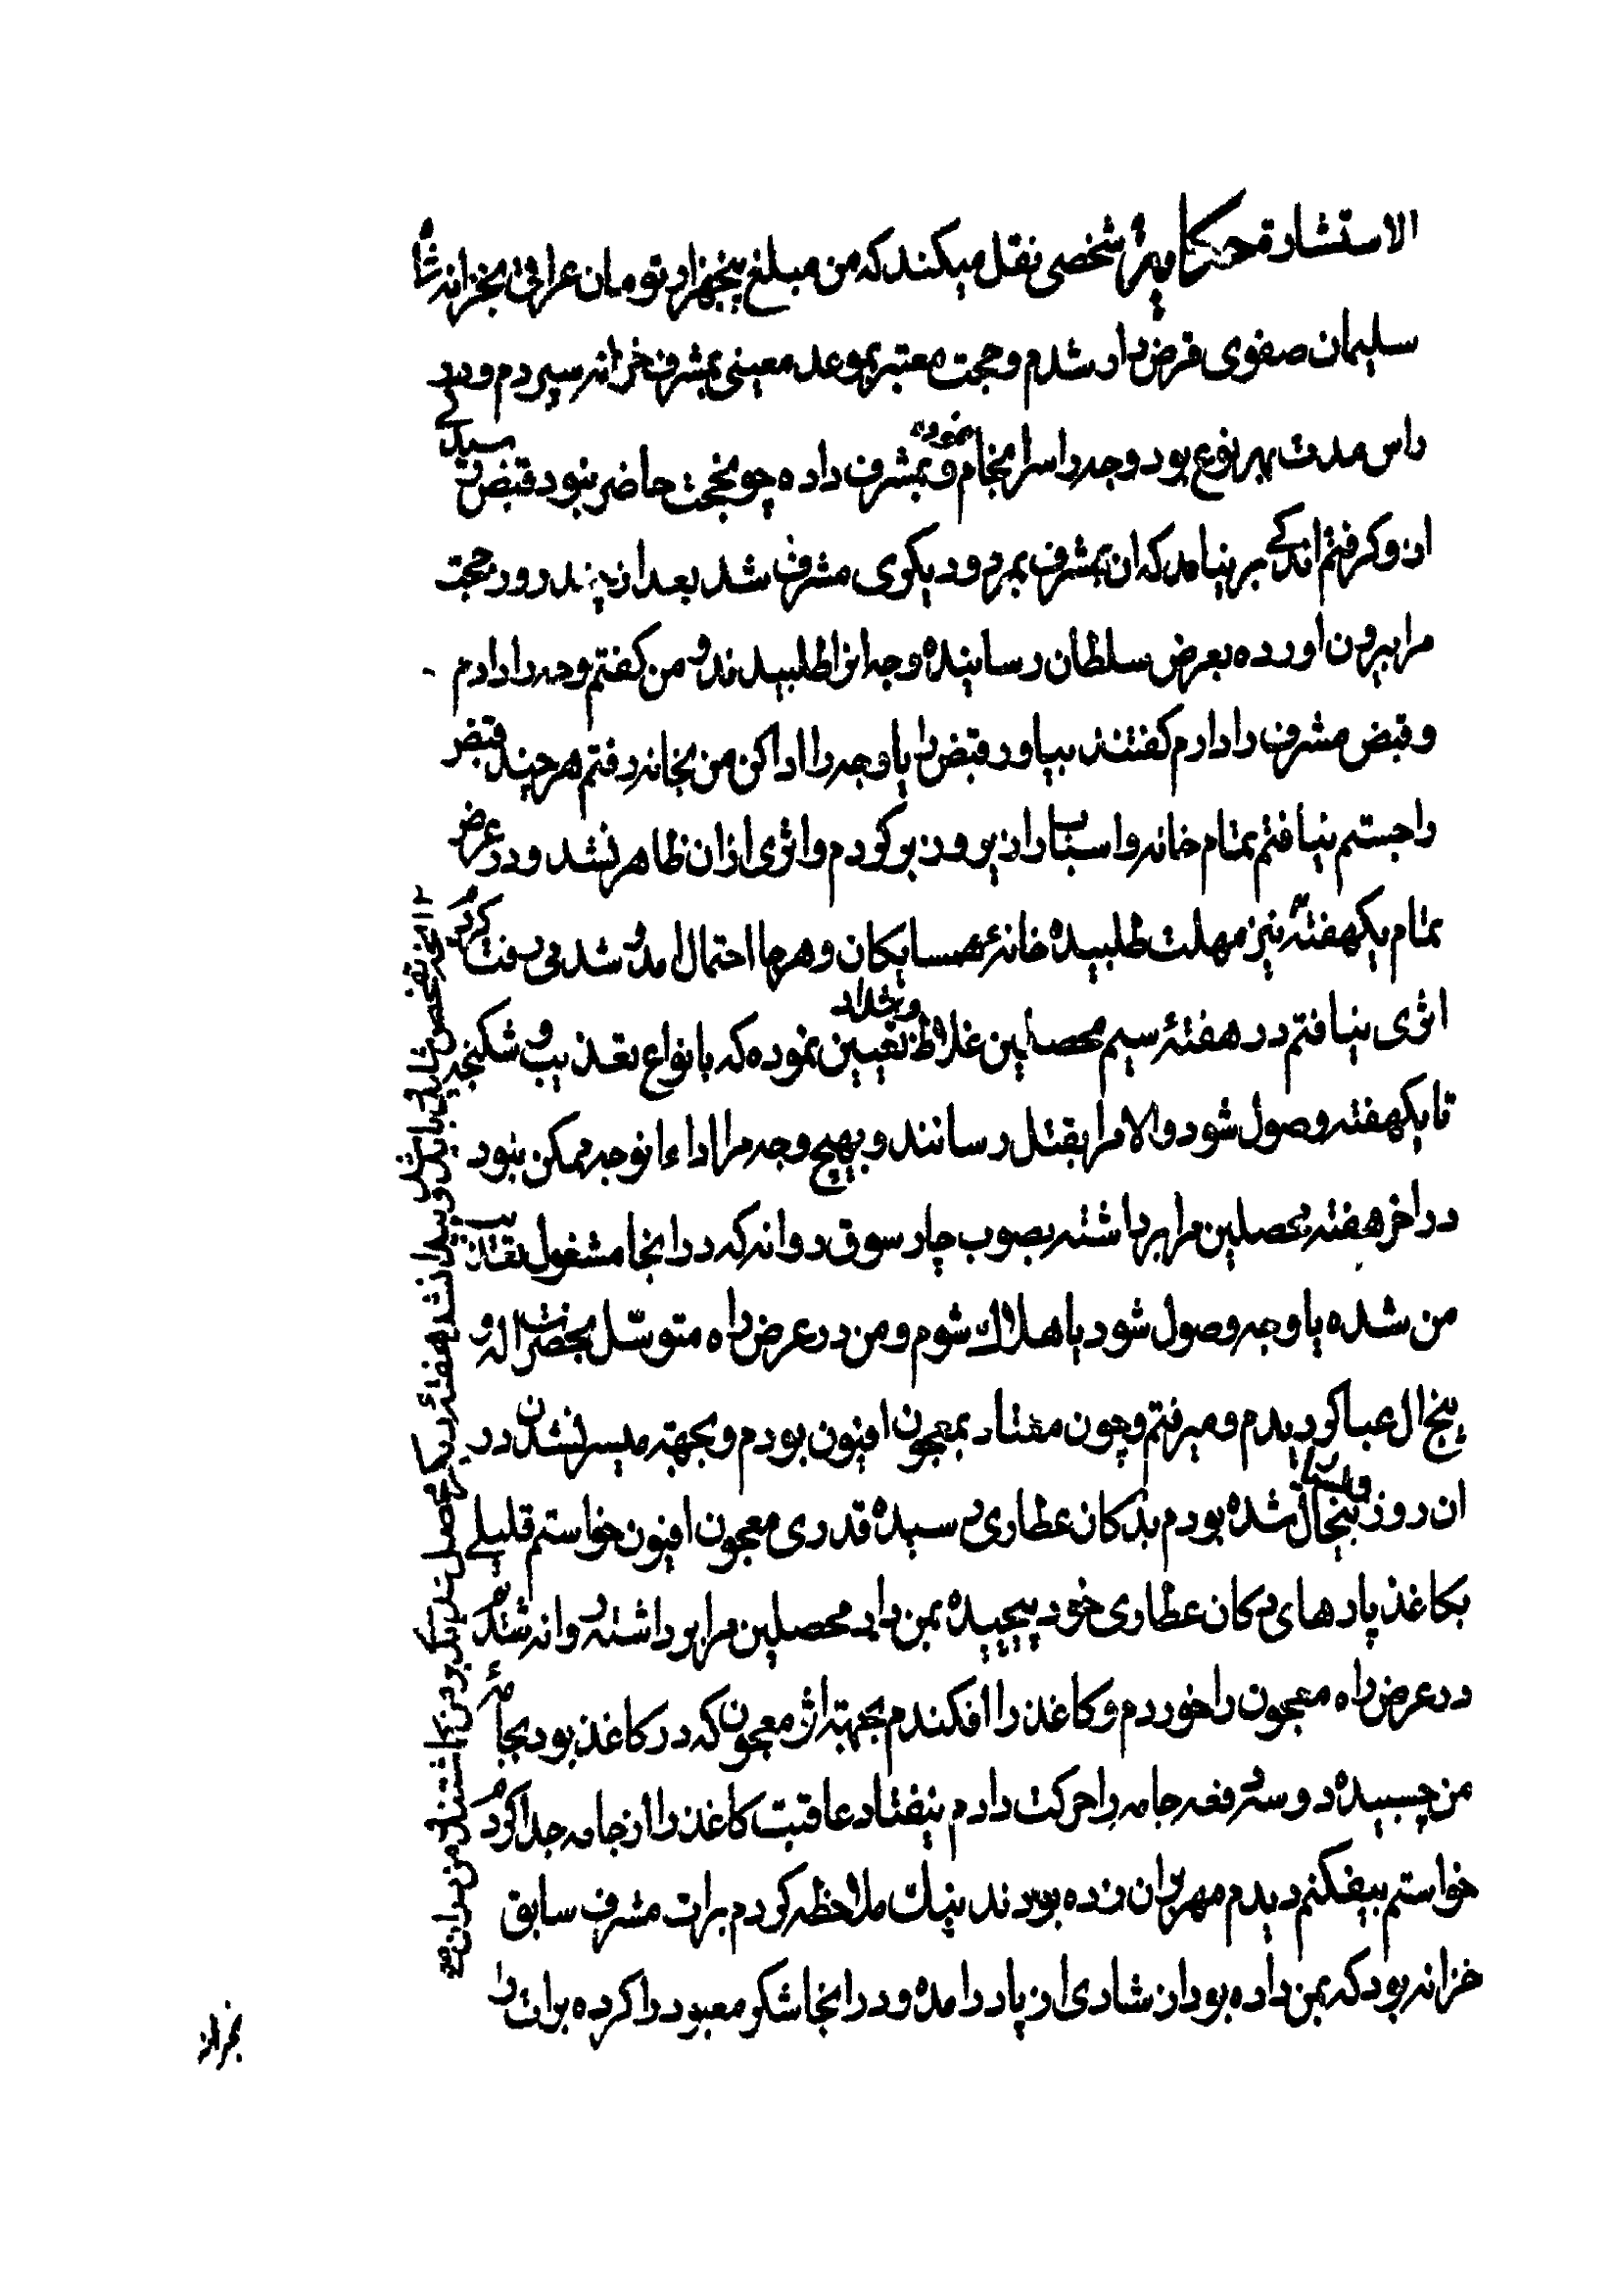 الاستشارة حکایة شخصی نقل میکند که من مبلغ پنجهزار تومان عراقی بخزانه شاه
سلیمان صفوی قرض دار شدم و حجت معتبر بموعد معینی بمشرف خزانه سپردم و در
راس مدت بهر نوع بود وجه را سرانجام نموده و بمشرف داده چو نحجت حاضر نبود قبض رسیدگی
از و گرفتم اندکی بر نیامد که ان مشرف بمرد و دیگری مشرف شد بعد از چند روز حجت
مرا بیرون اورده بعرض سلطان رسانیده وجه انرا طلبیدند و من گفتم وجه را دادم
و قبض مشرف را دارم گفتند بیاور قبض را یا وجه را ادا کن من بخانه رفتم هر چند قبض
را جستم نیافتم تمام خانه و اسباب را زیر و زبر کردم و اثری ازان ظاهر نشد و در عرض
تمام یکهفته نیز مهلت طلبیده خانهٔ همسایکان و هر جا احتمال امد و شد می رفت کردم
اثری نیافتم در هفتهٔ سیم محصلین غلاظ و شداد تعیین نموده که بانواع تعذیب و شکنجه
تا یکهفته وصول شود والا مرا بقتل رسانند و بهیچ وجه مرا اداء انوجه ممکن نبود
در اخر هفته محصلین مرا برداشته بصوب چار سوق روانه که در انجا مشغول تعذیب
من شده یا وجه وصول شود یا هلاک شوم و من در عرض راه متوسل بحضرت اله و
پنج ال عبا کردیدم و میرفتم و چون معتاد بمعجون افیون بودم و بجهته میسر نشدن در
ان روز بیحال شده بودم بدکان عطاری رسیده قدری معجون افیون خواستم قلیلی
بکاغذ پارهای دکان عطاری خود پیچیده بمن داد محصلین مرا برداشته روانه شدند
در عرض راه معجون را خوردم و کاغذ را افکندم بجهته اثر معجون که در کاغذ بود بجامهٔ
من چسبیده دو سه دفعه جامه را حرکت دادم نیفتاد عاقبت کاغذ را از جامه جدا کرده
خواستم بیفکنم دیدم مهر بران زده بودند نیک ملاحظه کردم برات مشرف سابق
خزانه بود که بمن داده بود از شادی از پا درامده و در انجا شکر معبود را کرده برات را
بخزانه